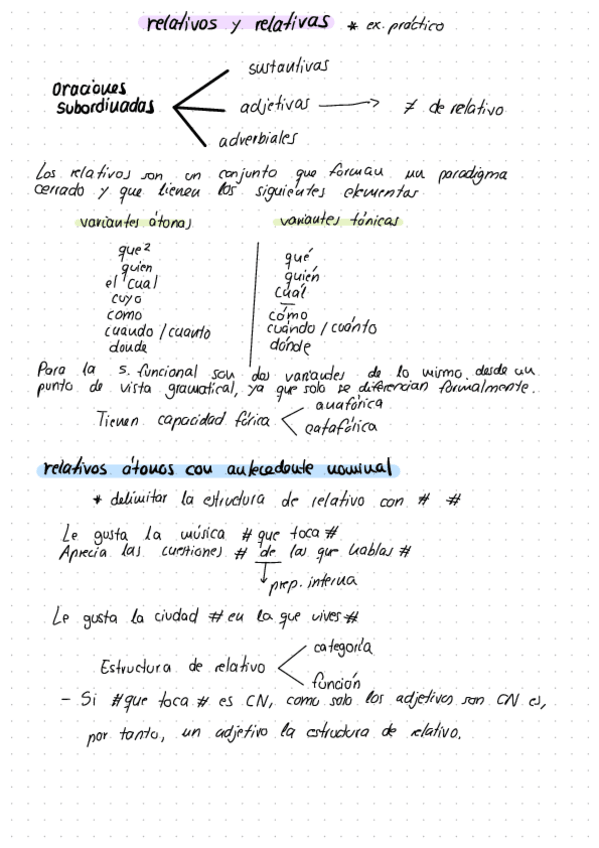 relativos y relativas * ex. práctico
sustantivas
oraciones
subordinadas
adjetivas → ≠ de relativo
adverbiales
Los relativos son un conjunto que forman un paradigma
cerrado y que tienen los siguientes elementos
variantes átonas variantes tónicas
que² qué
quien quién
el cual cuál
cuyo
como cómo
cuando / cuanto cuándo / cuánto
donde dónde
Para la s. funcional son dos variantes de lo mismo desde un
punto de vista gramatical, ya que solo se diferencian formalmente.
anafórica
Tienen capacidad fórica
catafórica
relativos átonos con antecedente nominal
* delimitar la estructura de relativo con # #
Le gusta la música # que toca #
Aprecia las cuestiones # de las que hablas #
prep. interna
Le gusta la ciudad # en la que vives #
categoría
Estructura de relativo
función
- Si # que toca # es CN, como solo los adjetivos son CN es,
por tanto, un adjetivo la estructura de relativo.